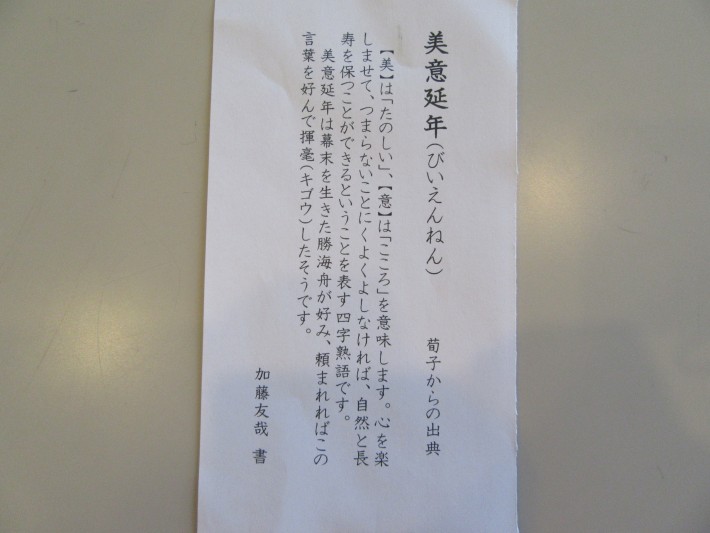 美意延年(びいえんねん)　荀子からの出典
【美】は「たのしい」、【意】は「こころ」を意味します。心を楽
しませて、つまらないことにくよくよしなければ、自然と長
寿を保つことができるということを表す四字熟語です。
美意延年は幕末を生きた勝海舟が好み、頼まれればこの
言葉を好んで揮毫(キゴウ)したそうです。
加藤友哉　書